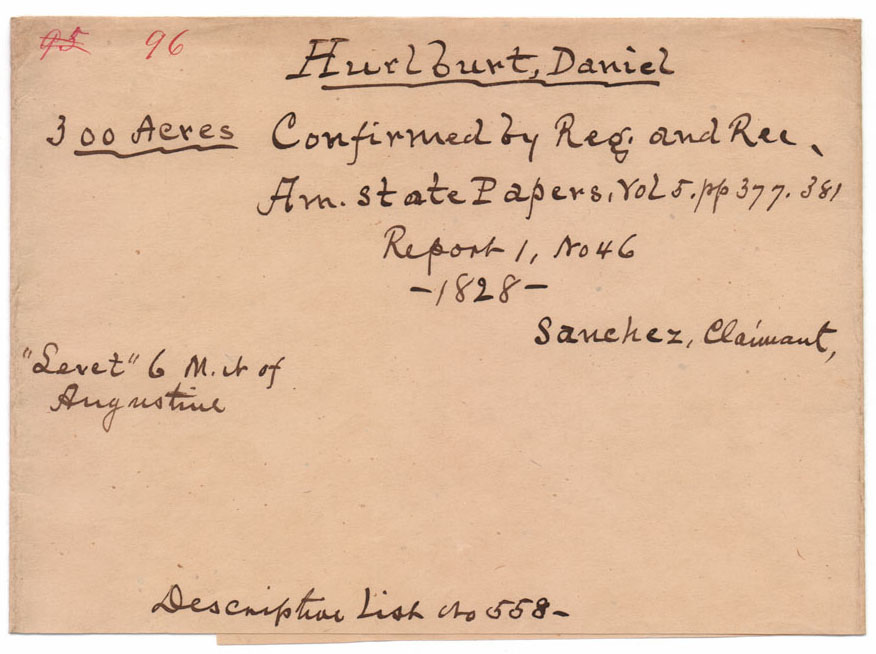 95 96
Hurlburt, Daniel
300 Acres Confirmed by Reg. and Rec.
Am. State Papers, Vol 5. pp 377. 381
Report 1, No 46
-1828-
Sanchez, Claimant,
"Levet" 6 M. N of
Augustine
Descriptive List No 558-